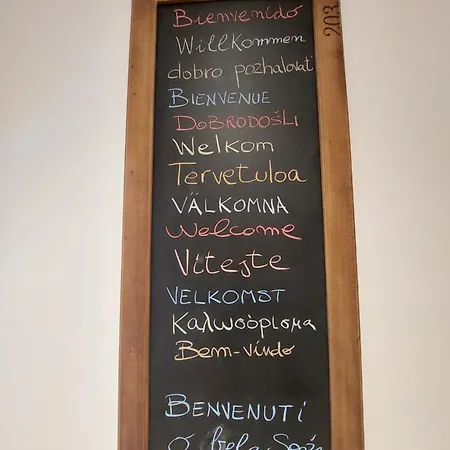 Bienvenidó
Willkommen
dobro pozhalovat'
BIENVENUE
DOBRODOŠLI
Welkom
Tervetuloa
VÄLKOMNA
Welcome
Vitejte
VELKOMST
Καλωσόρισμα
Bem-vindo
BENVENUTI
203